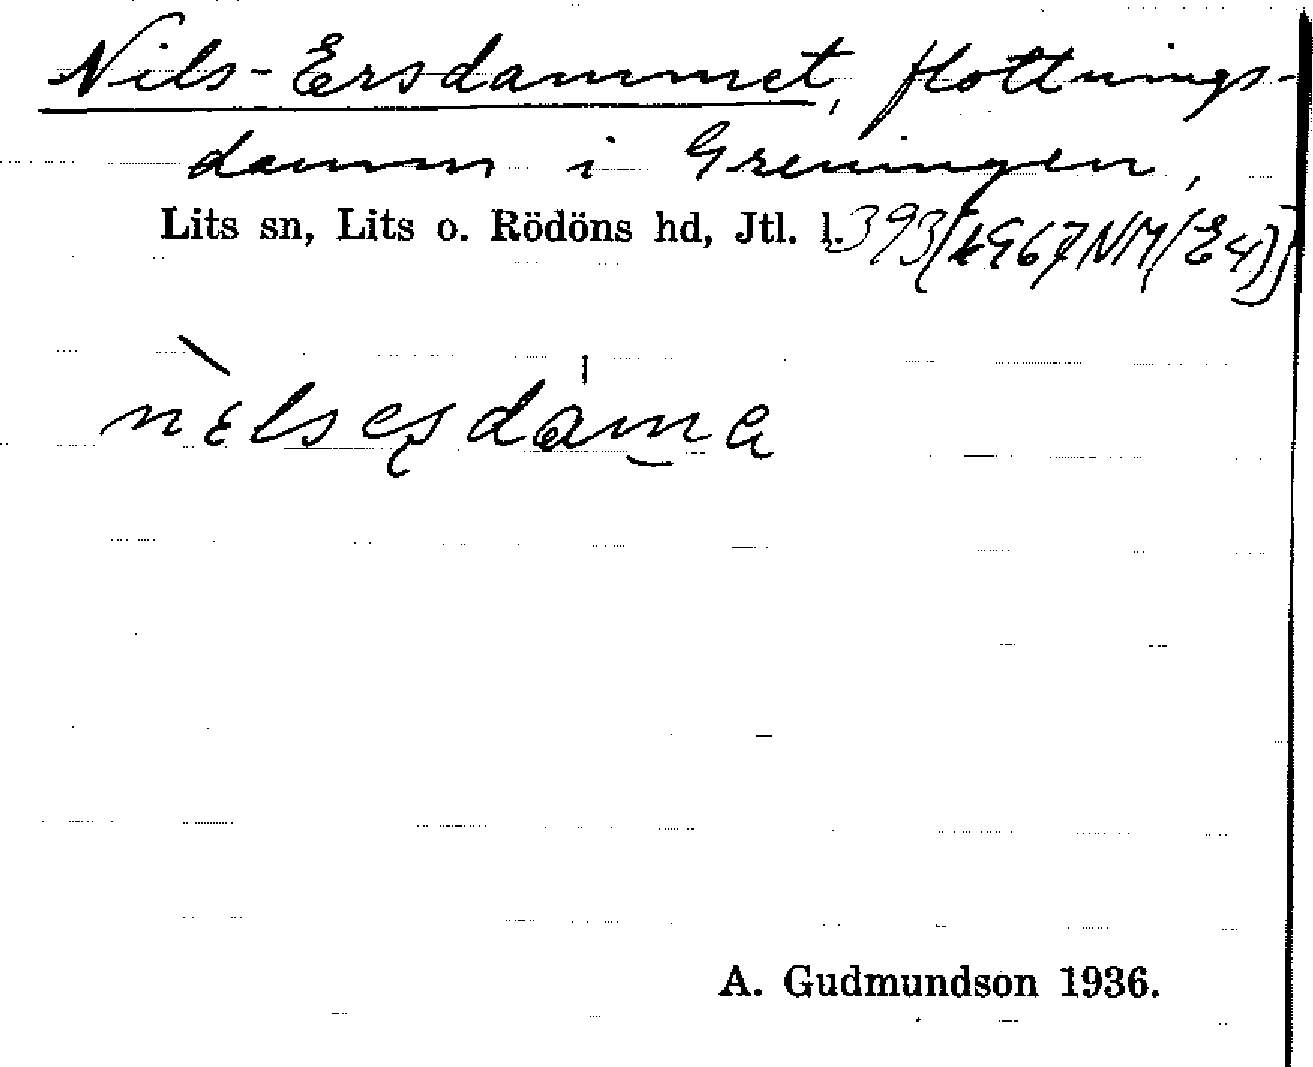 Nils-Ersdammet, flottnings-
damm i Greningen,
Lits sn, Lits o. Rödöns hd, Jtl. l.
nɛlsesdama
A. Gudmundson 1936.